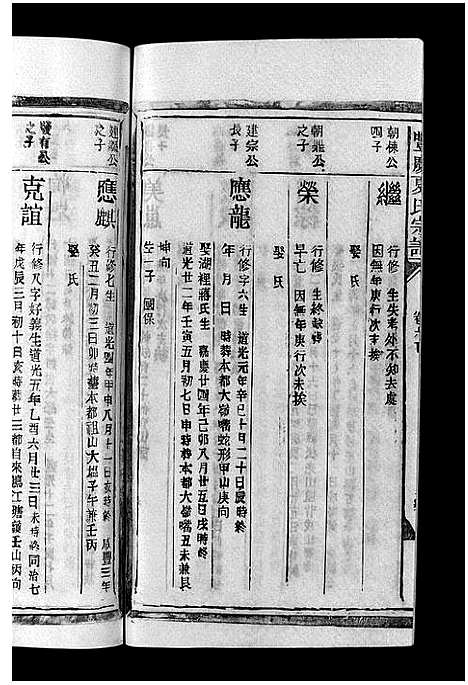 豐慶夏氏宗譜
朝倈公
四子
繼
行修 生失考外不知去處
因無年庚行次未挨
娶氏
朝雖公
之子
榮
行修 生終缺譜
早亡 因無年庚行次未挨
娶氏
建宗公
長子
應龍
行修字六生 道光元年辛巳十月二十日辰時終
年 月 日 時葬本都大嶺嘴蛇形甲山庚向
娶湖裡蔣氏生 嘉慶廿四年己卯八月廿五日戌時終
道光廿二年壬寅五月初七日申時葬本都大嶺嘴丑未兼艮
坤向
生一子 國保
之子
應麒
行修七生 道光四年甲申八月十一日亥時終 咸豐三年
癸丑二月初三日卯時葬本都祖山大塭子午兼壬丙
娶氏
發有公
之子
克誼
行修八字好義生道光五年乙酉六月廿三日未時終同治七
年戊辰三月初十日亥時葬廿三都自來
壬山丙向